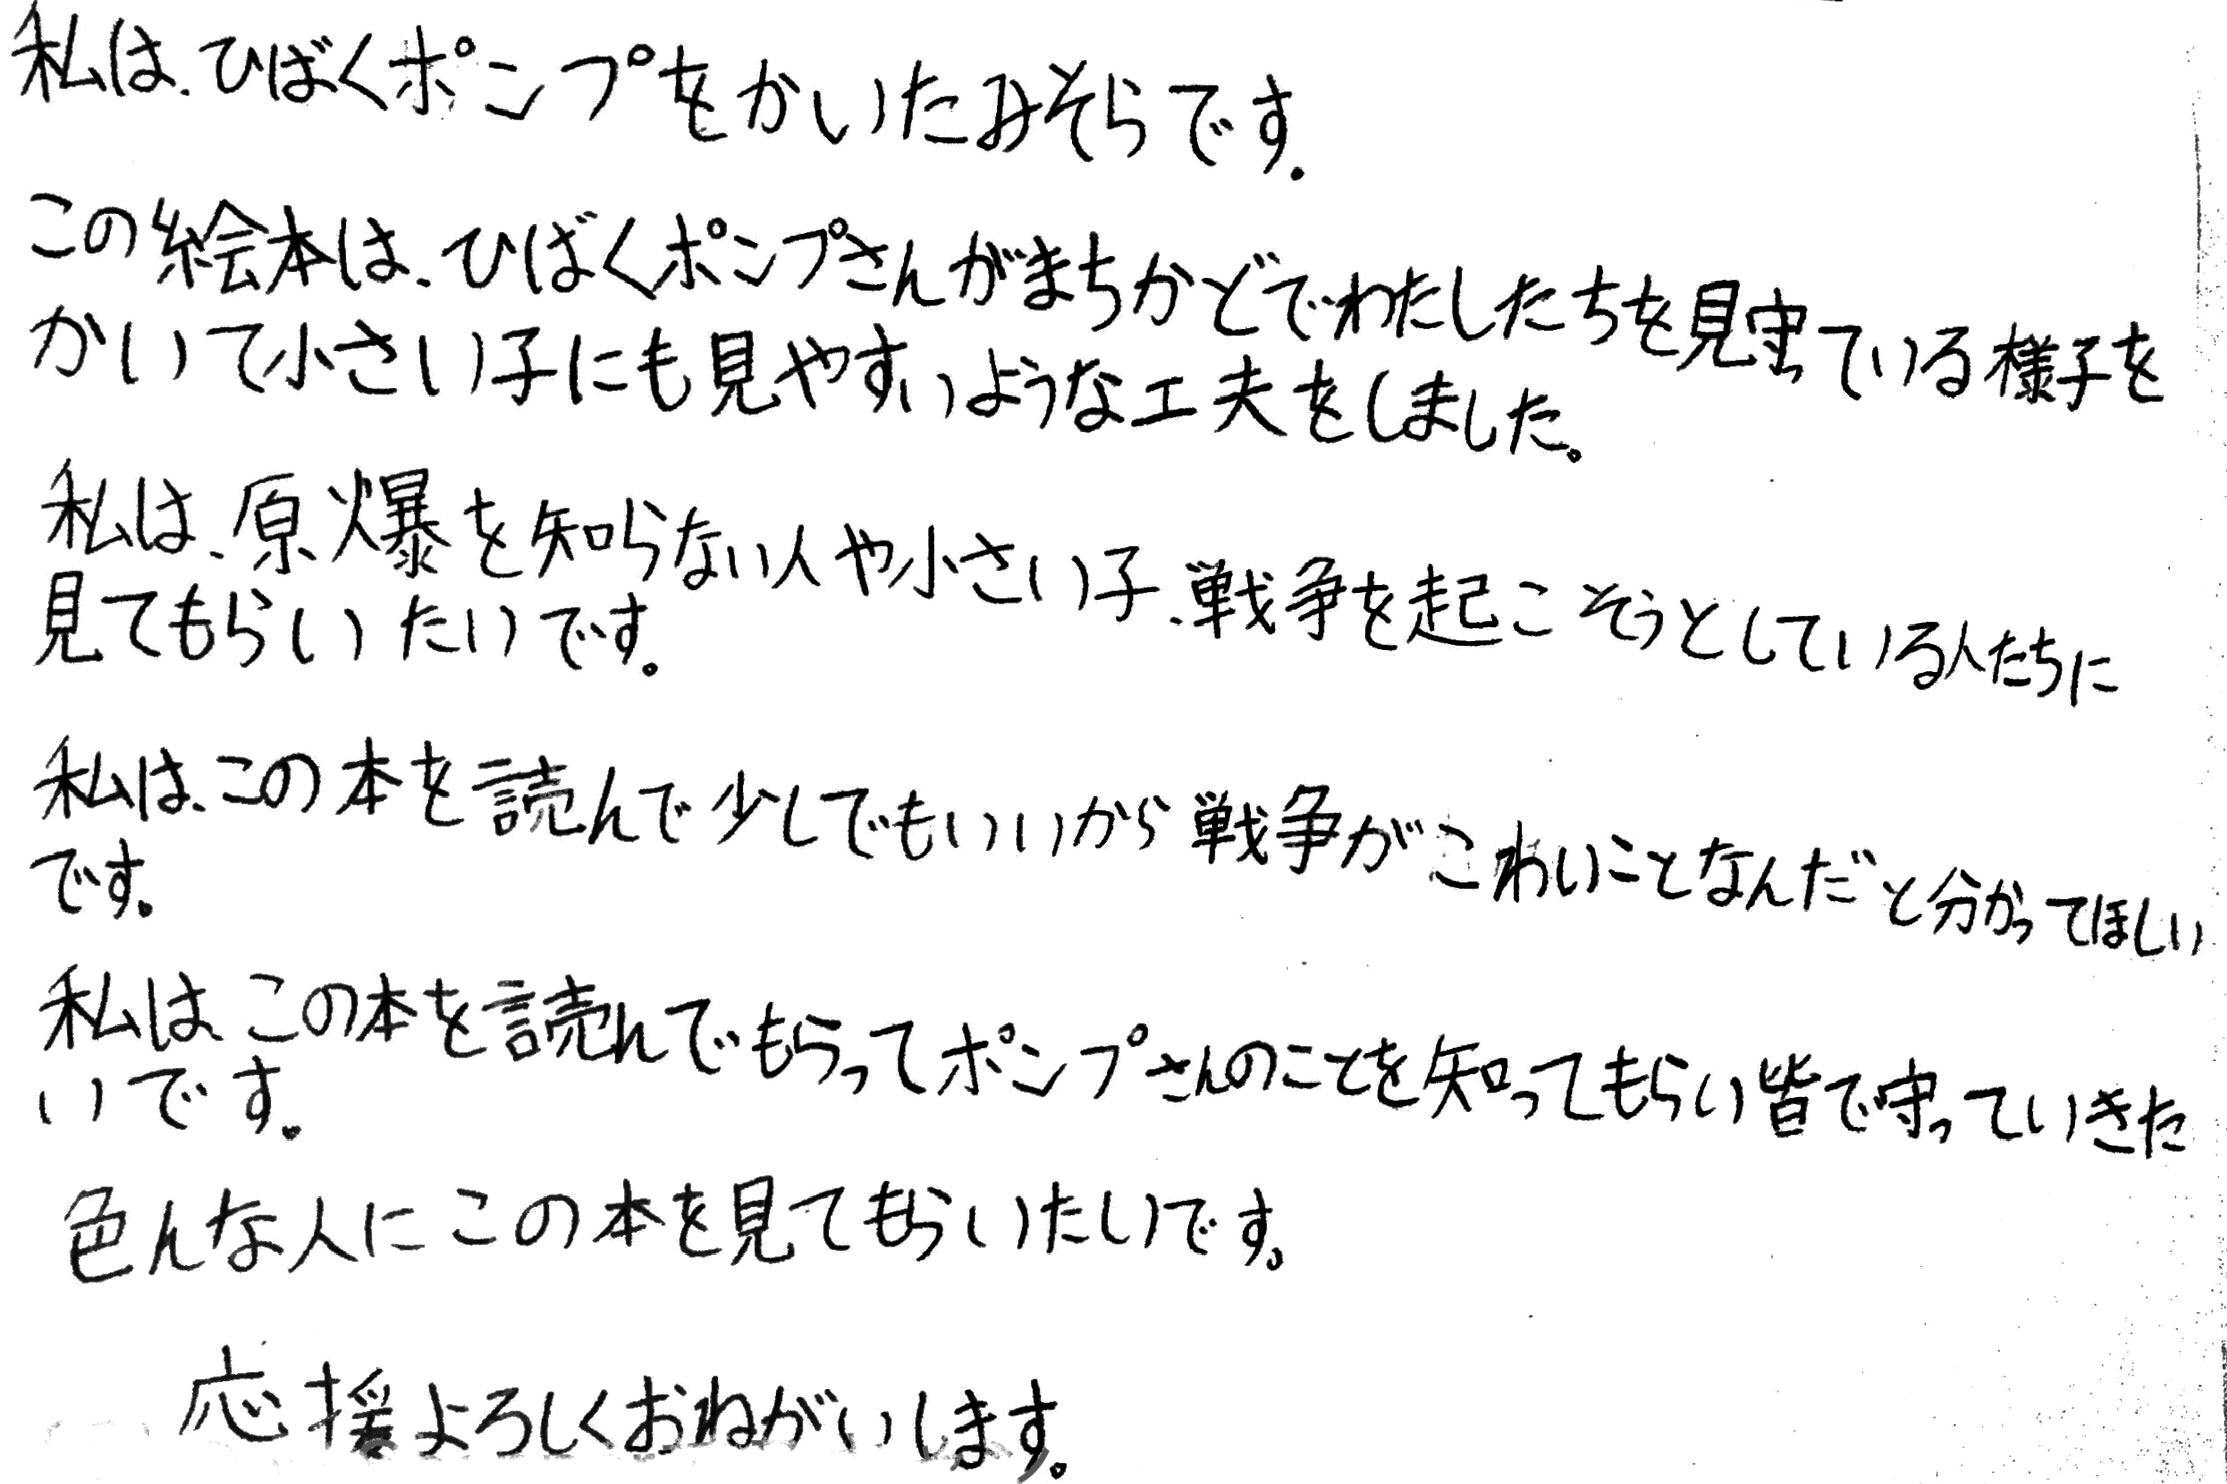 私は、ひばくポンプをかいたみそらです.
この絵本は、ひばくポンプさんがまちかどでわたしたちを見守っている様子を
かいて小さい子にも見やすいような工夫をしました。
私は、原爆を知らない人や小さい子、戦争を起こそうとしている人たちに
見てもらいたいです。
私は、この本を読んで少しでもいいから戦争がこわいことなんだと分かってほしい
です。
私は、この本を読んでもらってポンプさんのことを知ってもらい皆で守っていきた
いです。
色んな人にこの本を見てもらいたいです。
応援よろしくおねがいします。